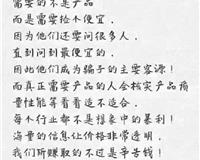 需要的不是产品
而是需要捡个便宜，
因为他们还要问很多人，
直到问到最便宜的，
因此他们成为骗子的主要客源！
而真正需要产品的人会核实产品质
量性能等看看适不适合，
每个行业都不是想象中的暴利！
海量的信息让价格非常透明，
我们所赚取的不过是辛苦钱！